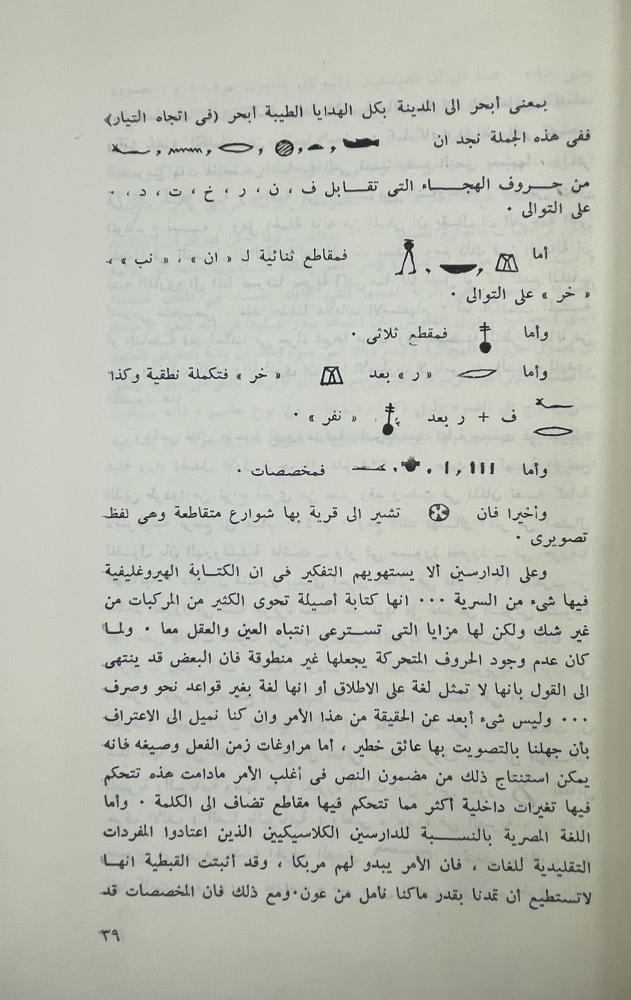 بمعنى أبحر الى المدينة بكل الهدايا الطيبة أبحر (فى اتجاه التيار)
ففى هذه الجملة نجد ان
من حروف الهجاء التى تقابل ف ، ن ، ر ، خ ، ت ، د ، ٠
على التوالى ٠
أما فمقاطع ثنائية لـ « ان » ، « نب » ،
« خر » على التوالى ٠
وأما فمقطع ثلاثى ٠
وأما « ر » بعد « خر » فتكملة نطقية وكذا
ف + ر بعد « نفر » ٠
وأما فمخصصات ٠
وأخيرا فان تشير الى قرية بها شوارع متقاطعة وهى لفظ
تصويرى ٠
وعلى الدارسين ألا يستهويهم التفكير فى ان الكتابة الهيروغليفية
فيها شىء من السرية ٠٠٠ انها كتابة أصيلة تحوى الكثير من المركبات من
غير شك ولكن لها مزايا التى تسترعى انتباه العين والعقل معا ٠ ولما
كان عدم وجود الحروف المتحركة يجعلها غير منطوقة فان البعض قد ينتهى
الى القول بانها لا تمثل لغة على الاطلاق أو انها لغة بغير قواعد نحو وصرف
٠٠٠ وليس شىء أبعد عن الحقيقة من هذا الأمر وان كنا نميل الى الاعتراف
بأن جهلنا بالتصويت بها عائق خطير ، أما مراوغات زمن الفعل وصيغه فانه
يمكن استنتاج ذلك من مضمون النص فى أغلب الأمر مادامت هذه تتحكم
فيها تغيرات داخلية أكثر مما تتحكم فيها مقاطع تضاف الى الكلمة ٠ وأما
اللغة المصرية بالنسبة للدارسين الكلاسيكيين الذين اعتادوا المفردات
التقليدية للغات ، فان الأمر يبدو لهم مربكا ، وقد أثبتت القبطية انها
لاتستطيع أن تمدنا بقدر ماكنا نأمل من عون٠ومع ذلك فان المخصصات قد
٣٩